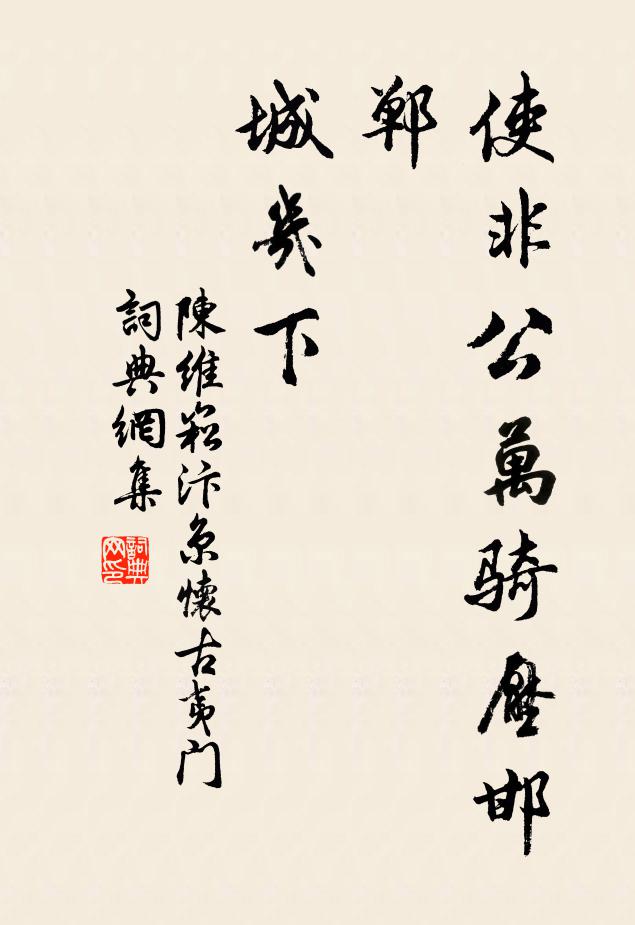 使非公萬騎壓邯
鄲
城幾下
陳維崧汴京懷古夷门
詞典網集
詞典
网印